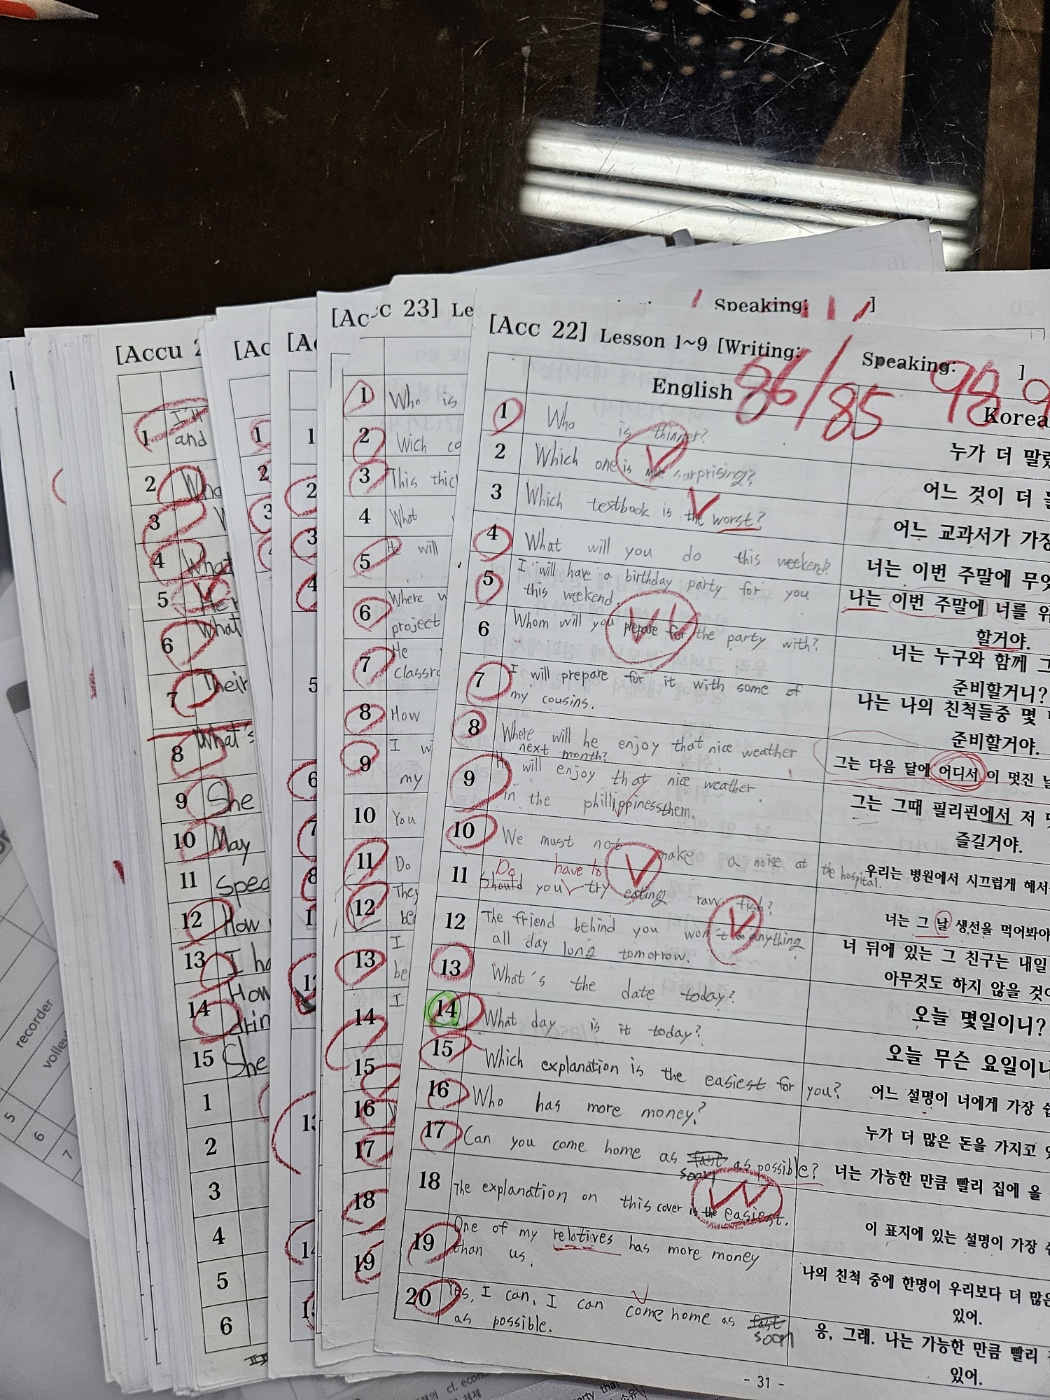 Speaking: ]
[Acc 22] Lesson 1~9 [Writing: 86/85 Speaking: 98 ]
English
Korea
1 Who is thinner?
누가 더 말랐
2 Which one is surprising?
어느 것이 더 놀
3 Which textbook is the worst?
어느 교과서가 가장
4 What will you do this weekend?
너는 이번 주말에 무엇
5 I will have a birthday party for you
this weekend.
나는 이번 주말에 너를 위
할거야.
6 Whom will you prepare for the party with?
너는 누구와 함께 그
준비할거니?
7 I will prepare for it with some of
my cousins.
나는 나의 친척들중 몇
준비할거야.
8 Where will he enjoy that nice weather
next month?
그는 다음 달에 어디서 이 멋진 날
9 He will enjoy that nice weather
in the
그는 그때 필리핀에서 저 멋
즐길거야.
10 We must not make a noise at the hospital.
우리는 병원에서 시끄럽게 해서
11 Do have to
Should you try eating raw fish?
너는 그 날 생선을 먹어봐야
12 The friend behind you won't do anything
all day long tomorrow.
너 뒤에 있는 그 친구는 내일
아무것도 하지 않을 것이
13 What's the date today?
오늘 몇일이니?
14 What day is it today?
오늘 무슨 요일이니
15 Which explanation is the easiest for you?
어느 설명이 너에게 가장 쉽
16 Who has more money?
누가 더 많은 돈을 가지고 있
17 Can you come home as fast as possible?
soon
너는 가능한 만큼 빨리 집에 올
18 The explanation on this cover is the easiest.
이 표지에 있는 설명이 가장 쉬
19 One of my relatives has more money
than us.
나의 친척 중에 한명이 우리보다 더 많은
있어.
20 Yes, I can. I can come home as fast
soon
as possible.
응, 그래. 나는 가능한 만큼 빨리
있어.
- 31 -
[Ac
c 23] Le
1 Who is
2 Wich
3 This thic
4 What
5 He will
6 Where w
project
7 He
classr
8 How
9 I w
my
10 You
11 Do
12 They
be
13 I
be
14 I
15
16
17
18
19
[A
1
2
3
4
5
6
7
8
[Ac
1
2
3
[Accu 2
1 I'll
and
2 Who
3
4 What
5 Her
6 What
7 Their
8 What's
9 She
10 May
11 Spea
12 How
13 I ha
14 How
drin
15 She
1
2
3
4
5
6
recorder
volley
5
6
7